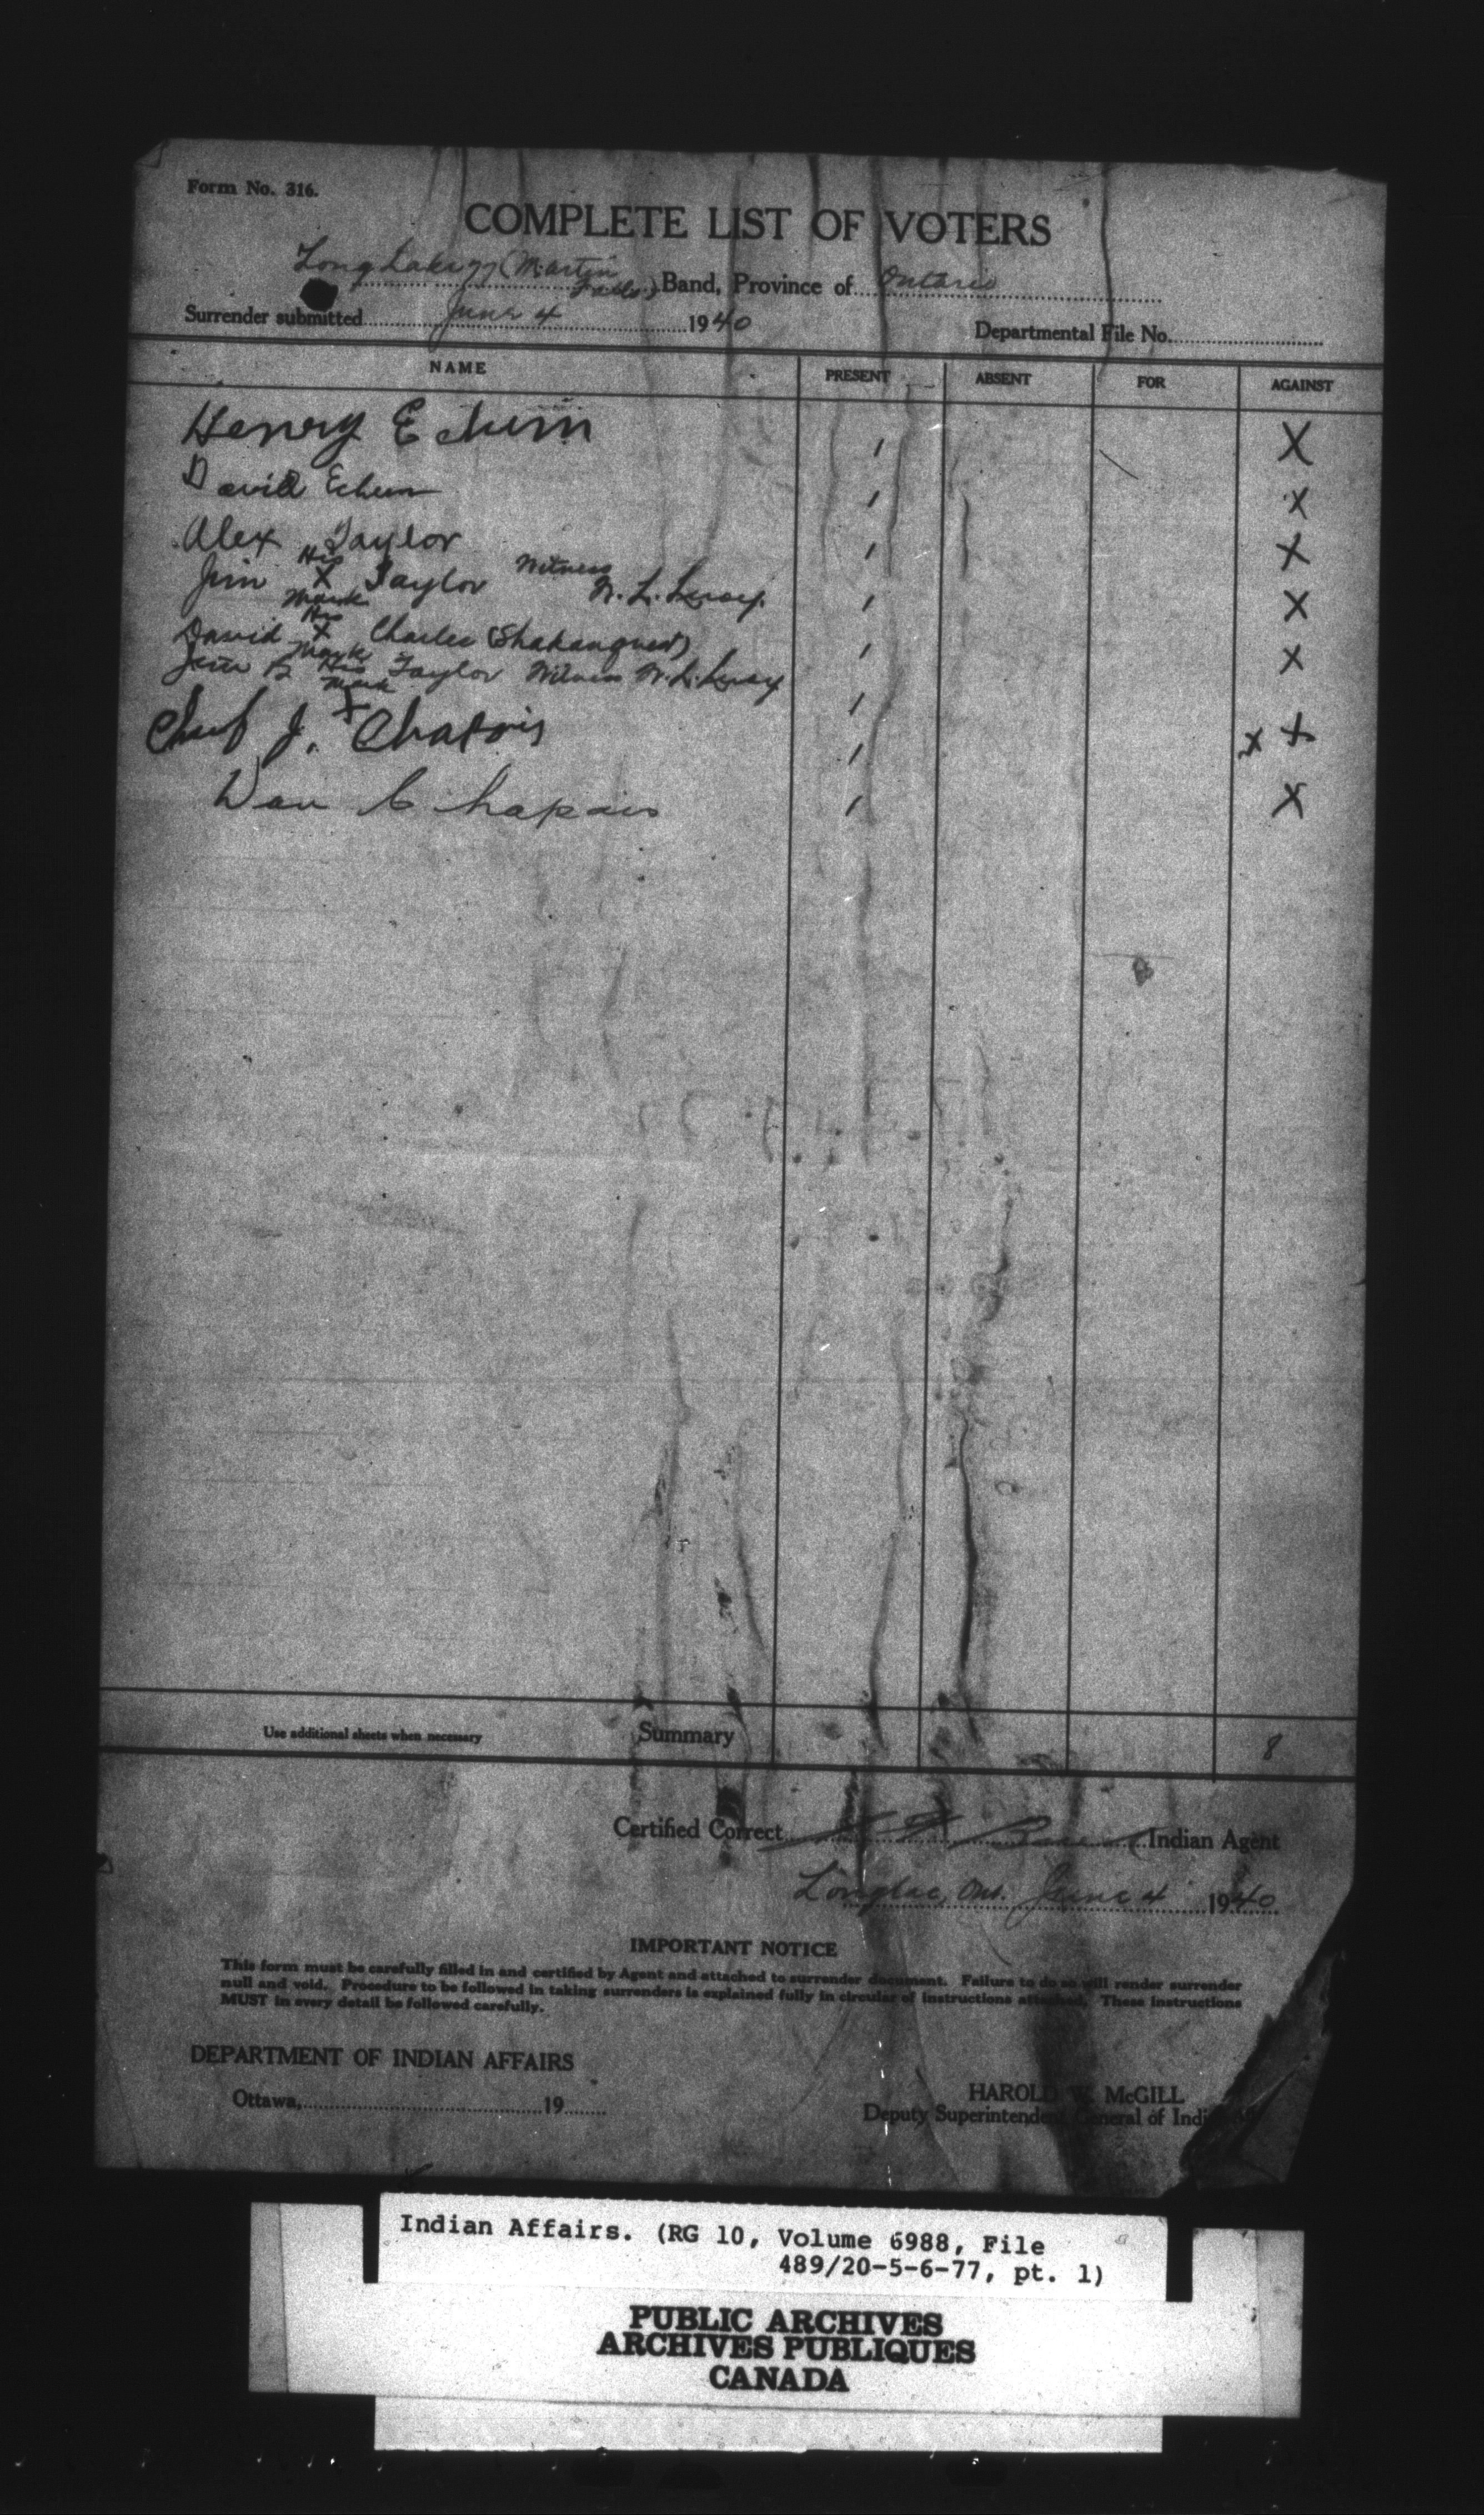 Form No. 316.
COMPLETE LIST OF VOTERS
Long Lake 77 (Martin Falls) Band, Province of Ontario
Surrender submitted June 4 1940 Departmental File No.
NAME PRESENT ABSENT FOR AGAINST
Henry Echum / X
David Echum / X
Alex Taylor / X
His
Jim X Taylor Witness / X
Mark
His
David X Charles / X
Mark
Jim B Taylor Witness /
His
Mark
X
Chief J. Chapais / X X
Dan Chapais / X
Use additional sheets when necessary Summary 8
Certified Correct Indian Agent
Longlac, Ont. June 4 1940
IMPORTANT NOTICE
This form must be carefully filled in and certified by Agent and attached to surrender document. Failure to do so will render surrender
null and void. Procedure to be followed in taking surrenders is explained fully in circular of instructions attached. These instructions
MUST in every detail be followed carefully.
DEPARTMENT OF INDIAN AFFAIRS
Ottawa, 19
HAROLD W. McGILL
Deputy Superintendent General of
Indian Affairs. (RG 10, Volume 6988, File
489/20-5-6-77, pt. 1)
PUBLIC ARCHIVES
ARCHIVES PUBLIQUES
CANADA